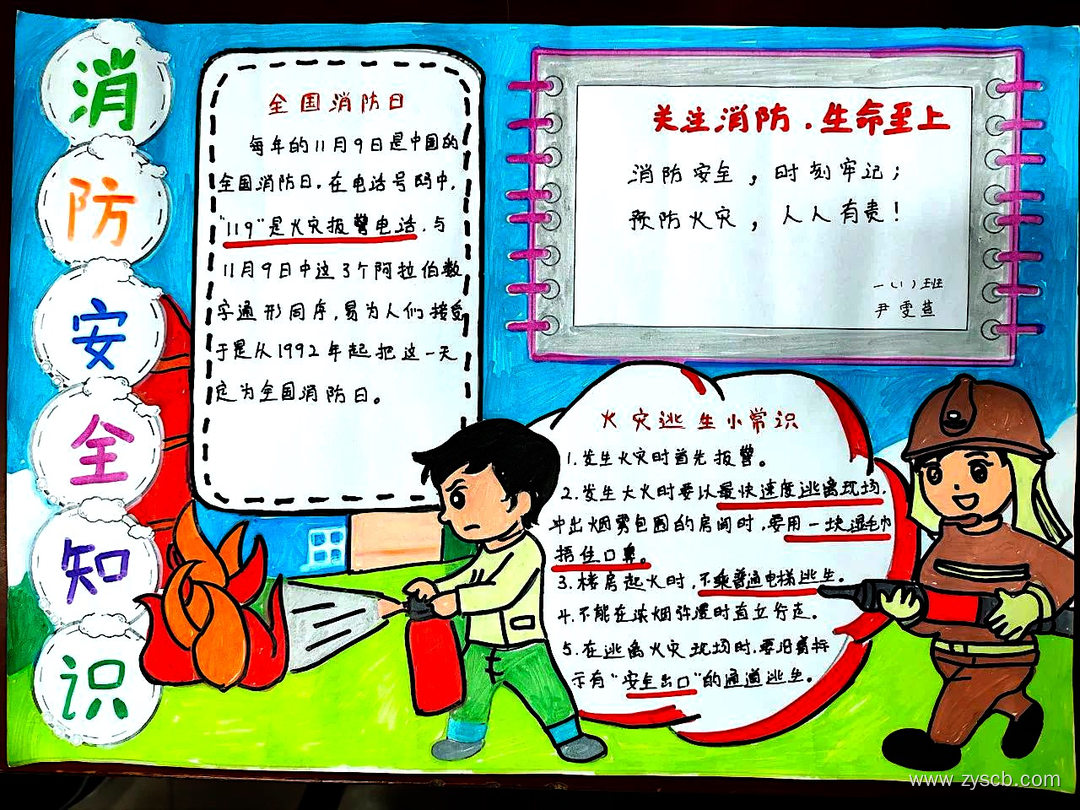 消
防
安
全
知
识
全国消防日
每年的11月9日是中国的
全国消防日。在电话号码中,
"119"是火灾报警电话,与
11月9日中这3个阿拉伯数
字通形同序,易为人们接受
于是从1992年起把这一天
定为全国消防日。
关注消防.生命至上
消防安全,时刻牢记;
预防火灾,人人有责!
一(1)班
尹雯萱
火灾逃生小常识
1.发生火灾时首先报警。
2.发生大火时要以最快速度逃离现场,
冲出烟雾包围的房间时,要用一块湿毛巾
捂住口鼻。
3.楼房起火时,不乘普通电梯逃生。
4.不能在浓烟弥漫时直立行走。
5.在逃离火灾现场时,要沿着标
示有"安全出口"的通道逃生。
www.zyscb.com